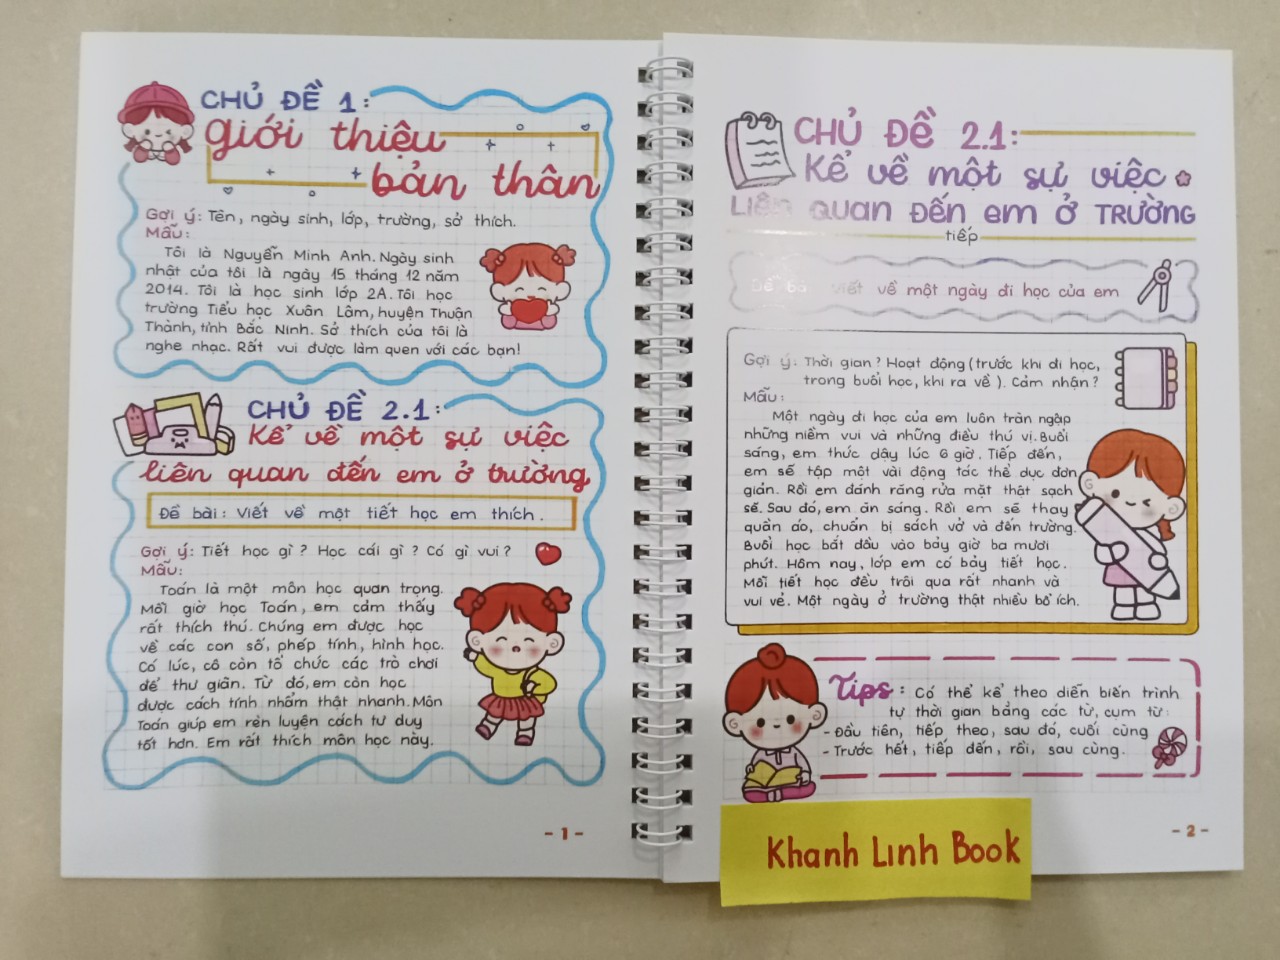 CHỦ ĐỀ 1:
giới thiệu
bản thân
Gợi ý: Tên, ngày sinh, lớp, trường, sở thích.
Mẫu:
Tôi là Nguyễn Minh Anh. Ngày sinh
nhật của tôi là ngày 15 tháng 12 năm
2014. Tôi là học sinh lớp 2A. Tôi học
trường Tiểu học Xuân Lâm, huyện Thuận
Thành, tỉnh Bắc Ninh. Sở thích của tôi là
nghe nhạc. Rất vui được làm quen với các bạn!
CHỦ ĐỀ 2.1:
Kể về một sự việc
liên quan đến em ở trường
Đề bài: Viết về một tiết học em thích.
Gợi ý: Tiết học gì? Học cái gì? Có gì vui?
Mẫu:
Toán là một môn học quan trọng.
Mỗi giờ học Toán, em cảm thấy
rất thích thú. Chúng em được học
về các con số, phép tính, hình học.
Có lúc, cô còn tổ chức các trò chơi
để thư giãn. Từ đó, em còn học
được cách tính nhẩm thật nhanh. Môn
Toán giúp em rèn luyện cách tư duy
tốt hơn. Em rất thích môn học này.
- 1 -
CHỦ ĐỀ 2.1:
Kể về một sự việc
LIÊN QUAN ĐẾN EM Ở TRƯỜNG
tiếp
Đề bài: Viết về một ngày đi học của em
Gợi ý: Thời gian? Hoạt động (trước khi đi học,
trong buổi học, khi ra về). Cảm nhận?
Mẫu:
Một ngày đi học của em luôn tràn ngập
những niềm vui và những điều thú vị. Buổi
sáng, em thức dậy lúc 6 giờ. Tiếp đến,
em sẽ tập một vài động tác thể dục đơn
giản. Rồi em đánh răng rửa mặt thật sạch
sẽ. Sau đó, em ăn sáng. Rồi em sẽ thay
quần áo, chuẩn bị sách vở và đến trường.
Buổi học bắt đầu vào bảy giờ ba mươi
phút. Hôm nay, lớp em có bảy tiết học.
Mỗi tiết học đều trôi qua rất nhanh và
vui vẻ. Một ngày ở trường thật nhiều bổ ích.
Tips: Có thể kể theo diễn biến trình
tự thời gian bằng các từ, cụm từ:
- Đầu tiên, tiếp theo, sau đó, cuối cùng
- Trước hết, tiếp đến, rồi, sau cùng.
- 2 -
Khanh Linh Book